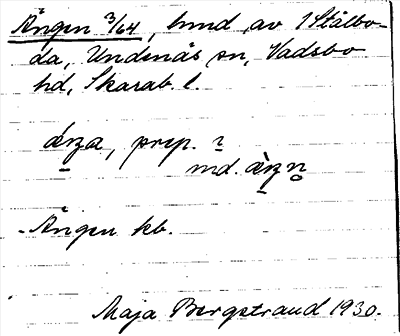 Ängen 3/64, hmd av 1 Stålbo-
da, Undenäs sn, Vadsbo
hd, Skarab. l.
prep. i
md.
Ängen kb.
Maja Bergstrand 1930.